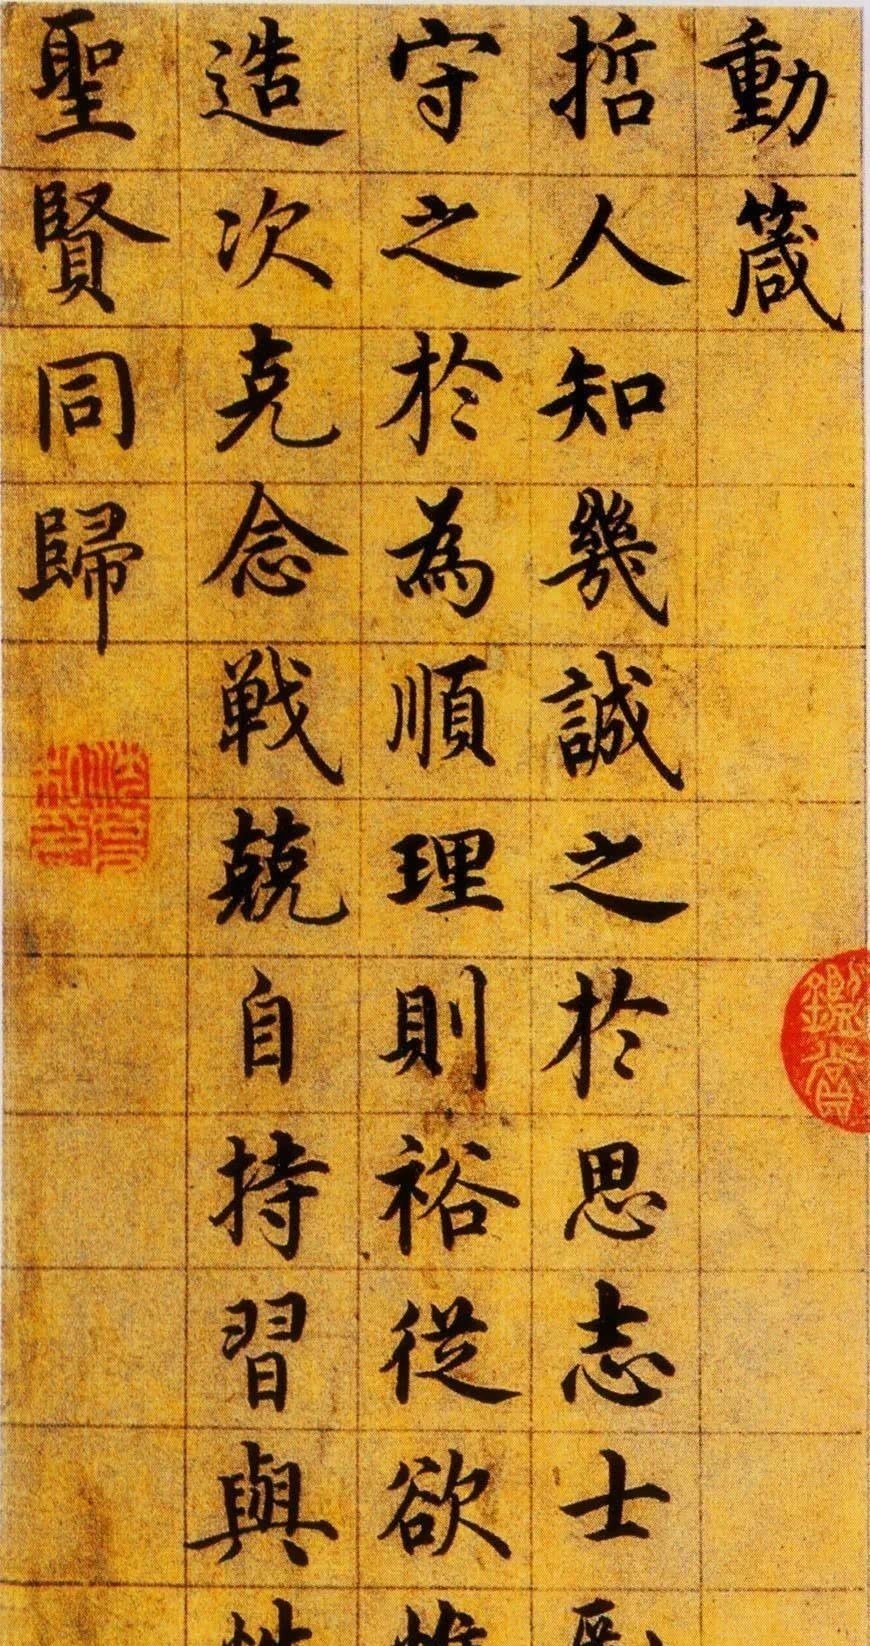 動箴
哲人知幾誠之於思志士
守之於為順理則裕從欲
造次克念戰兢自持習與
聖賢同歸